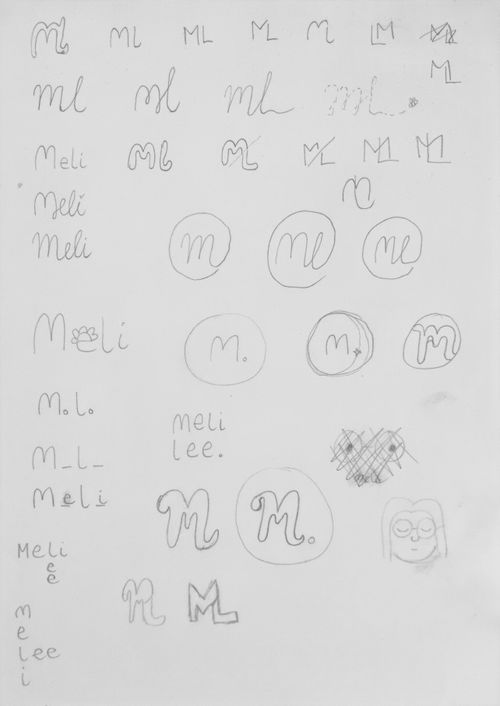 ML ML ML ML M LM
ML
ml ml ml ml
Meli ML ML ML ML ML
Meli
Meli m me me
Meli M. M. M
M.L.
meli
lee.
M_L_
Meli
meli
M M.
Meli
e
e
M ML
m
e
lee
i